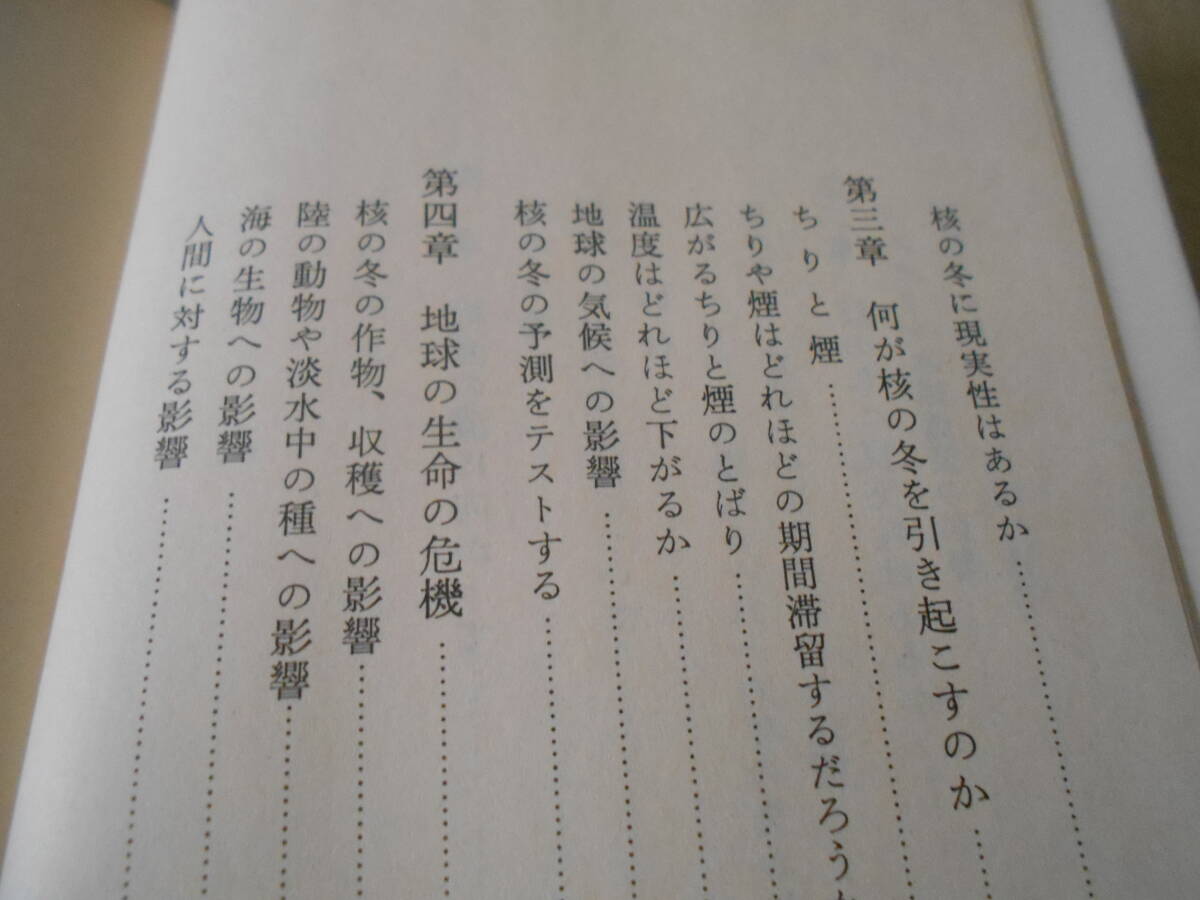 核の冬に現実性はあるか…………
第三章　何が核の冬を引き起こすのか……
ちりと煙…………
ちりや煙はどれほどの期間滞留するだろう
広がるちりと煙のとばり…………
温度はどれほど下がるか…………
地球の気候への影響…………
核の冬の予測をテストする…………
第四章　地球の生命の危機…………
核の冬の作物、収穫への影響…………
陸の動物や淡水中の種への影響…………
海の生物への影響…………
人間に対する影響…………